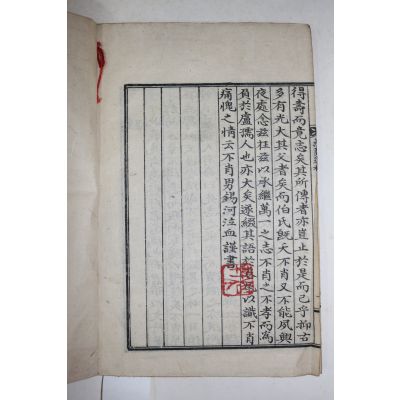 得壽而竟志矣其所傳者亦豈止於是而已乎抑古
多有光大其父者矣而伯氏旣夭不肖又不能夙興
夜處念玆在玆以承繼萬一之志不肖之不孝而爲
負於盧孺人也亦大矣遂綴其語於以識不肖
痛愧之情云不肖男錫河泣血謹書